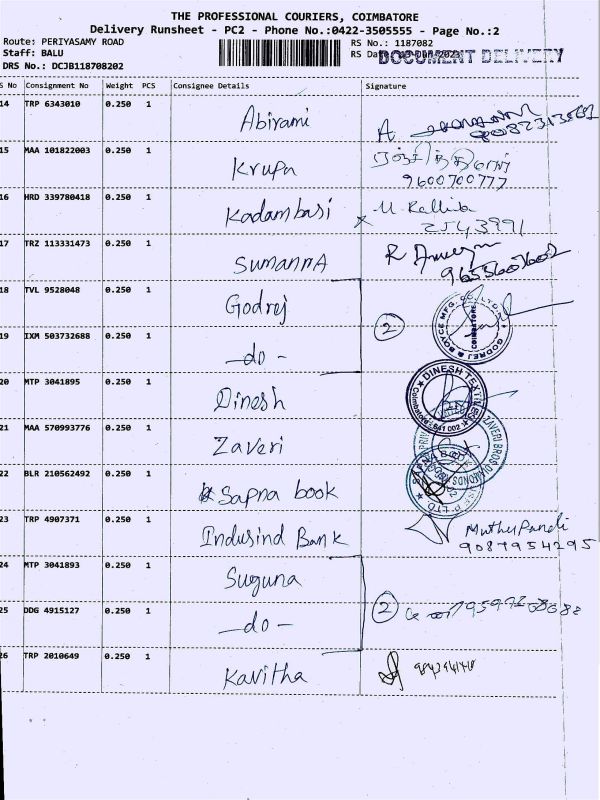 THE PROFESSIONAL COURIERS, COIMBATORE
Delivery Runsheet - PC2 - Phone No.:0422-3505555 - Page No.:2
Route: PERIYASAMY ROAD
RS No.: 1187082
Staff: BALU
RS Da
DOCUMENT DELIVERY
DRS No.: DCJB118708202
S No Consignment No Weight PCS Consignee Details Signature
14 TRP 6343010 0.250 1 Abirami A
15 MAA 101822003 0.250 1 Krupa
9600700777
16 HRD 339780418 0.250 1 Kadambasi
2543991
17 TRZ 111331473 0.250 1 SumannA R
18 TVL 9528048 0.250 1 Godrej 2 GODREJ & BOYCE MFG. CO. LTD. COIMBATORE
19 IXM 503732688 0.250 1 -do-
20 MTP 3041895 0.250 1 Dinesh DINESH TEXTILES Coimbatore 641 002
21 MAA 570993776 0.250 1 Zaveri ZAVERI BROS DIAMONDS
22 BLR 210562492 0.250 1 Sapna book SAPNA BOOK LTD.
23 TRP 4907371 0.250 1 Indusind Bank Muthu Pandi
9087954295
24 MTP 3041893 0.250 1 Suguna 2
25 DDG 4915127 0.250 1 -do-
26 TRP 2010649 0.250 1 Kavitha